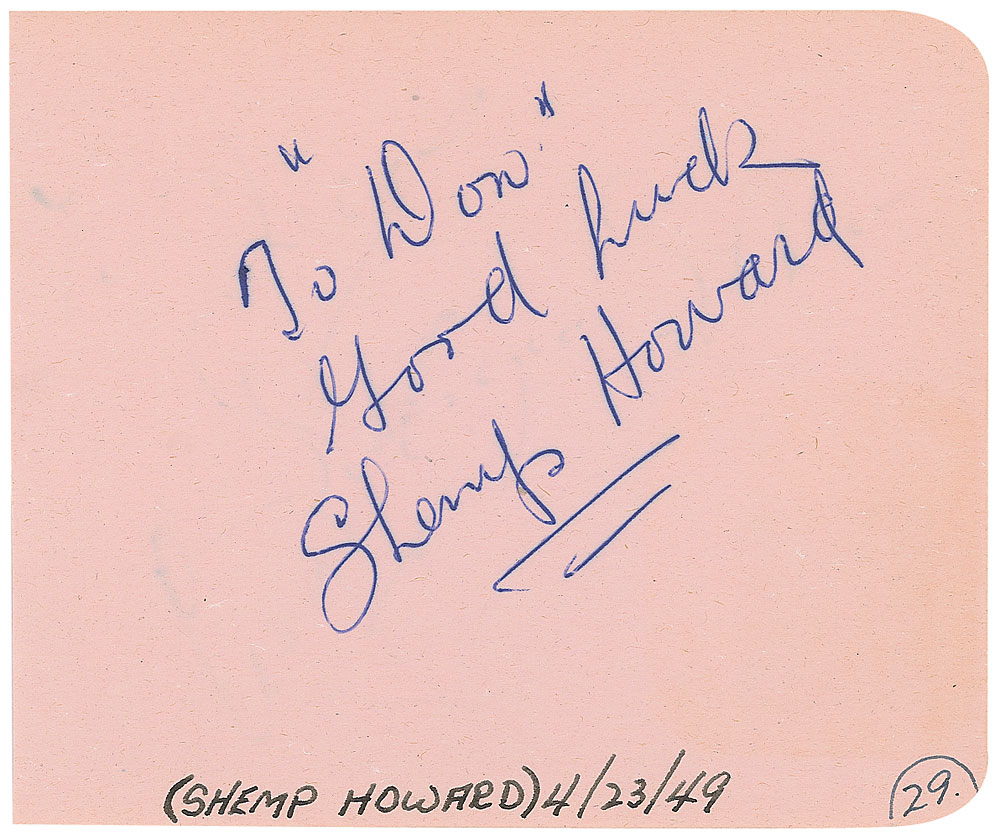 To "Don"
Good Luck
Shemp Howard
(SHEMP HOWARD) 4/23/49
29.